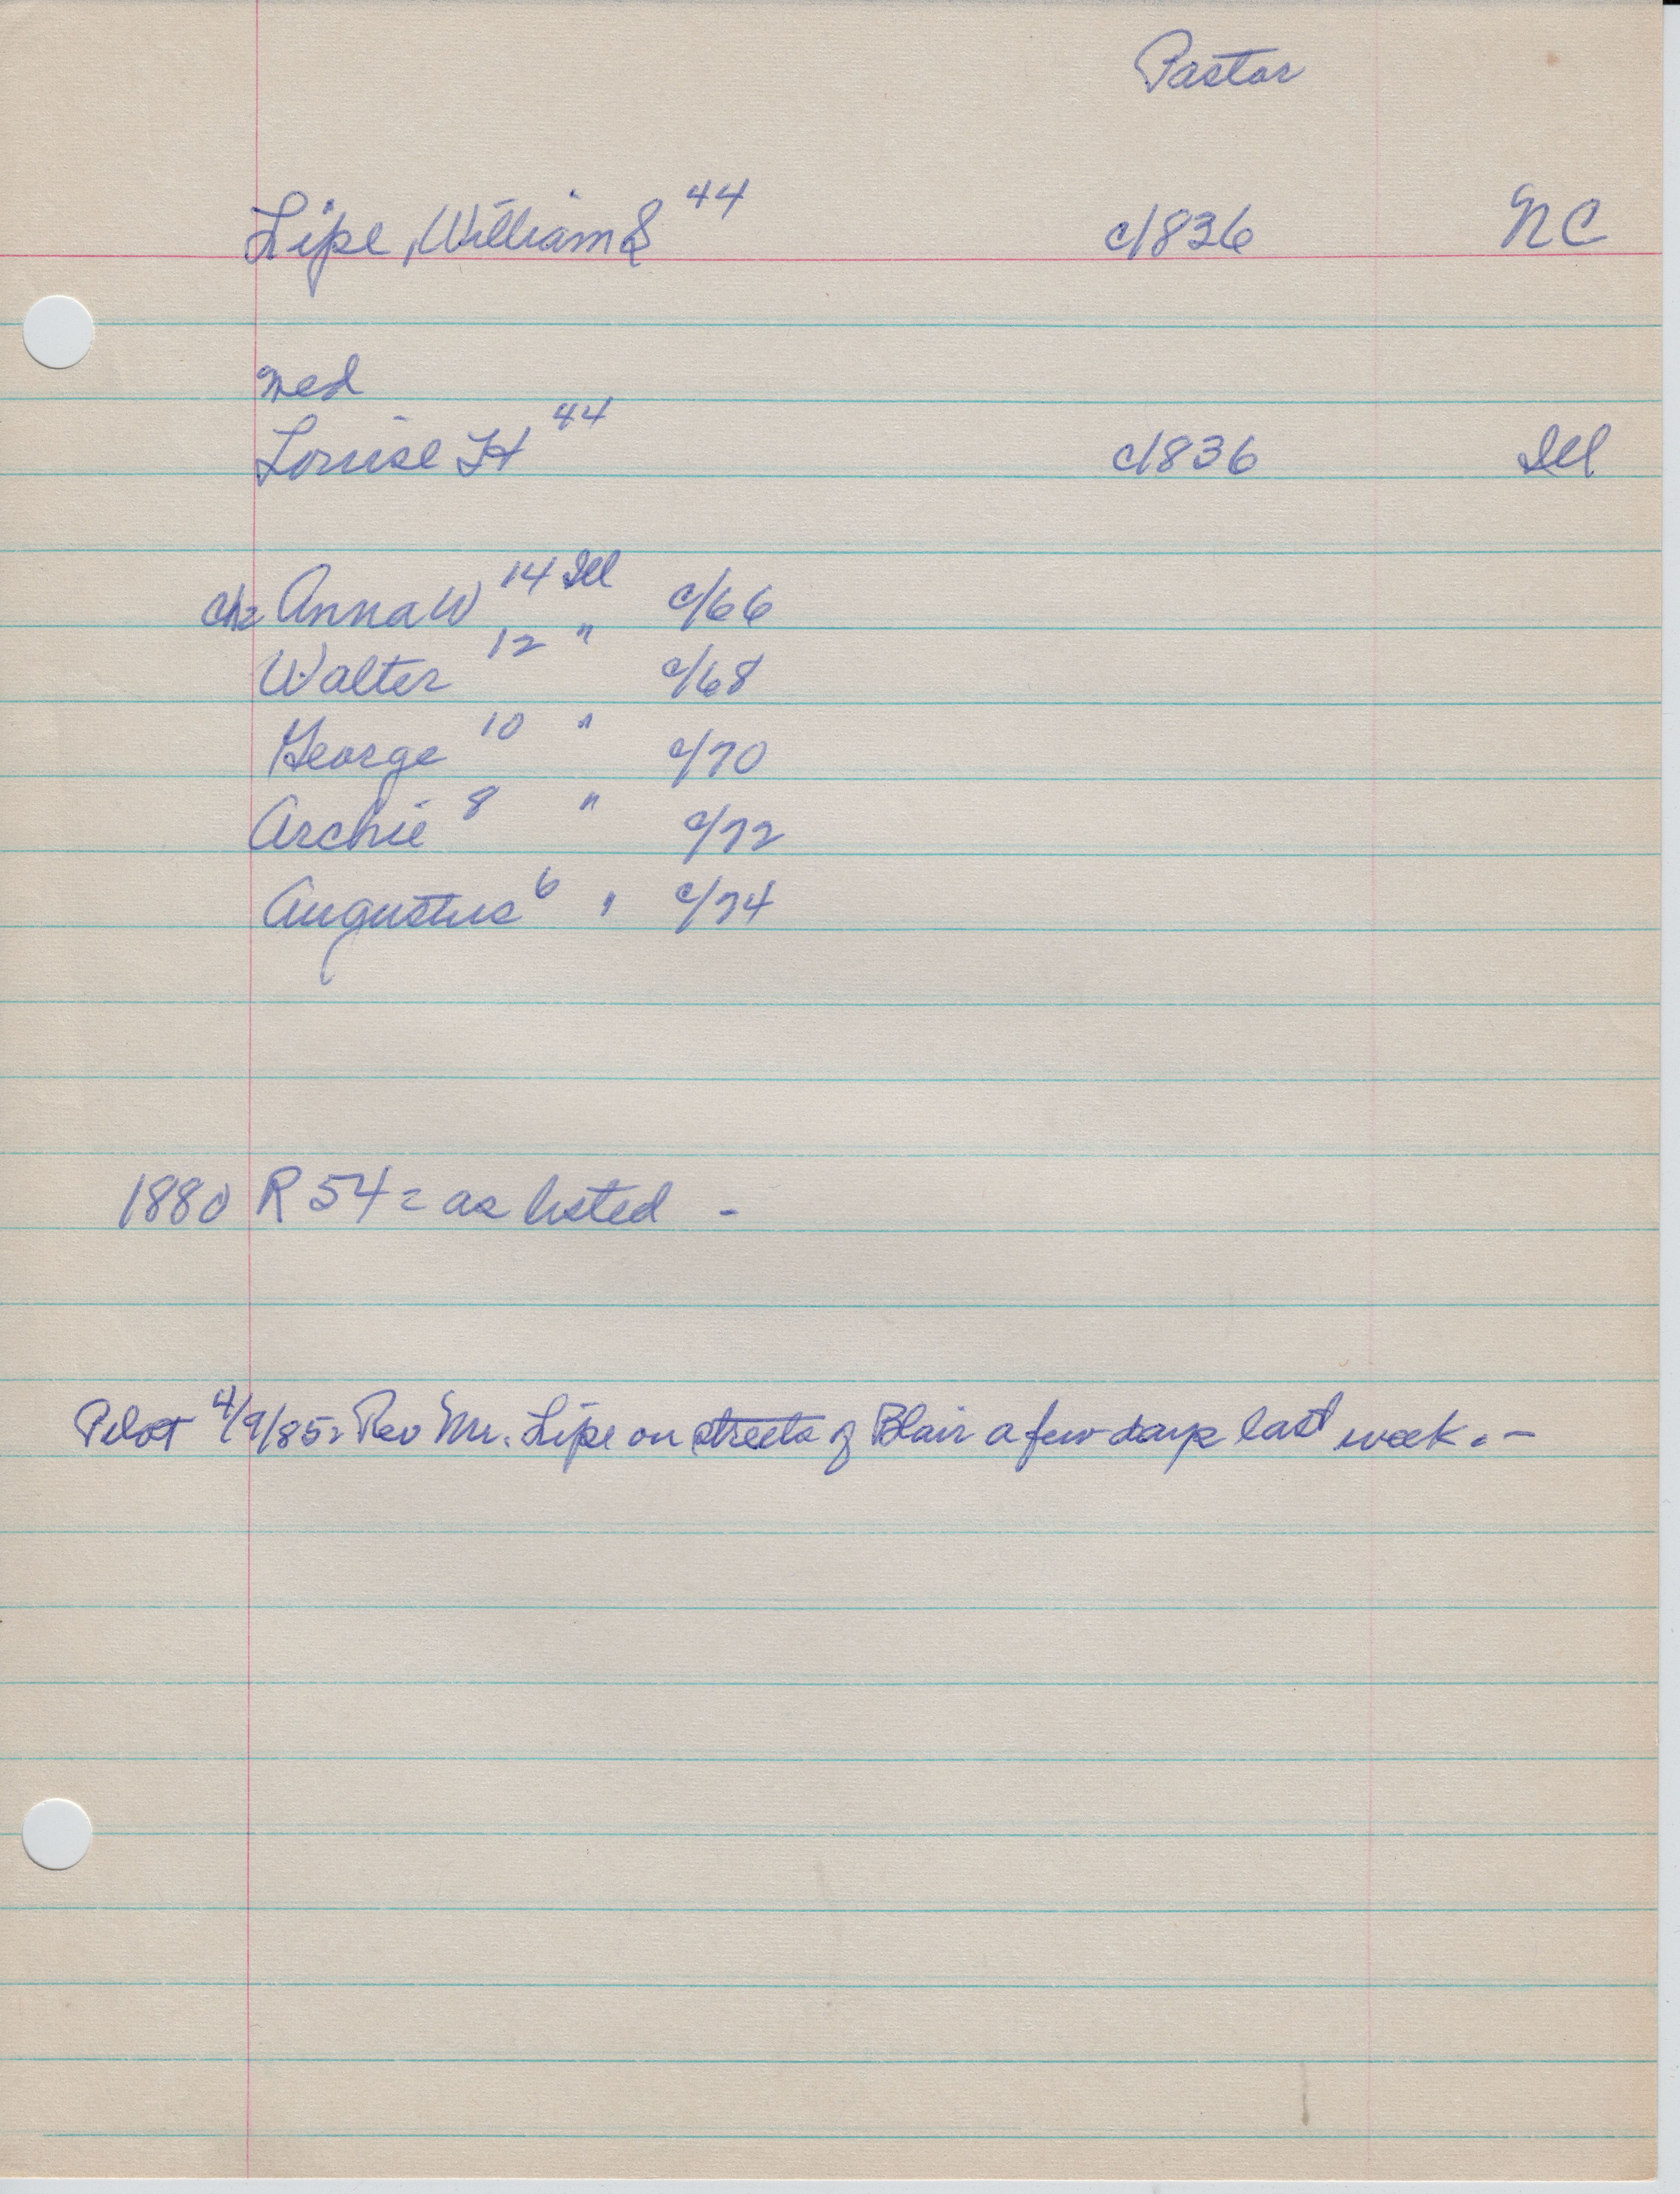 Pastor
Lipe, William S 44 c/836 NC
med
Louise H 44 c/836 Ill
ch= Anna W 14 Ill c/66
Walter 12 " c/68
George 10 " c/70
Archie 8 " c/72
Augustus 6 " c/74
1880 R 54 = as listed -
Pilot 4/9/85= Rev Mr. Lipe on streets of Blair a few days last week. -